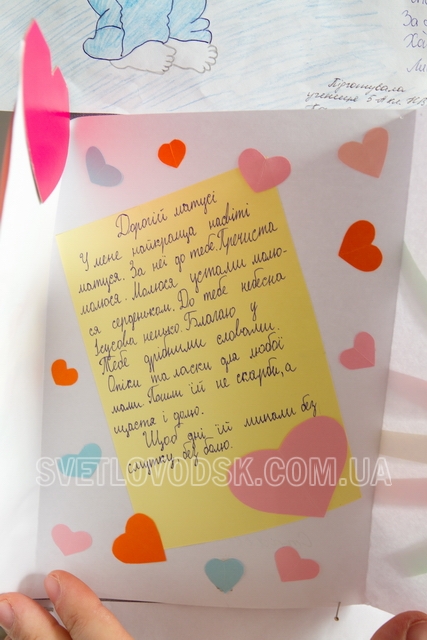 За
Ха
Ли
Підготувала
учениця 5-Б кл.
Дорогій матусі
У мене найкраща на світі
матуся. За неї до тебе, Пречиста
молюся. Молюся устами молю-
ся серденьком. До тебе небесна
Ісусова ненько. Благаю у
Тебе дрібними словами.
Опіки та ласки для любої
мами. Пошли їй не скарби, а
щастя і долю.
Щоб дні їй минали без
смутку, без болю.
SVETLOVODSK.COM.UA